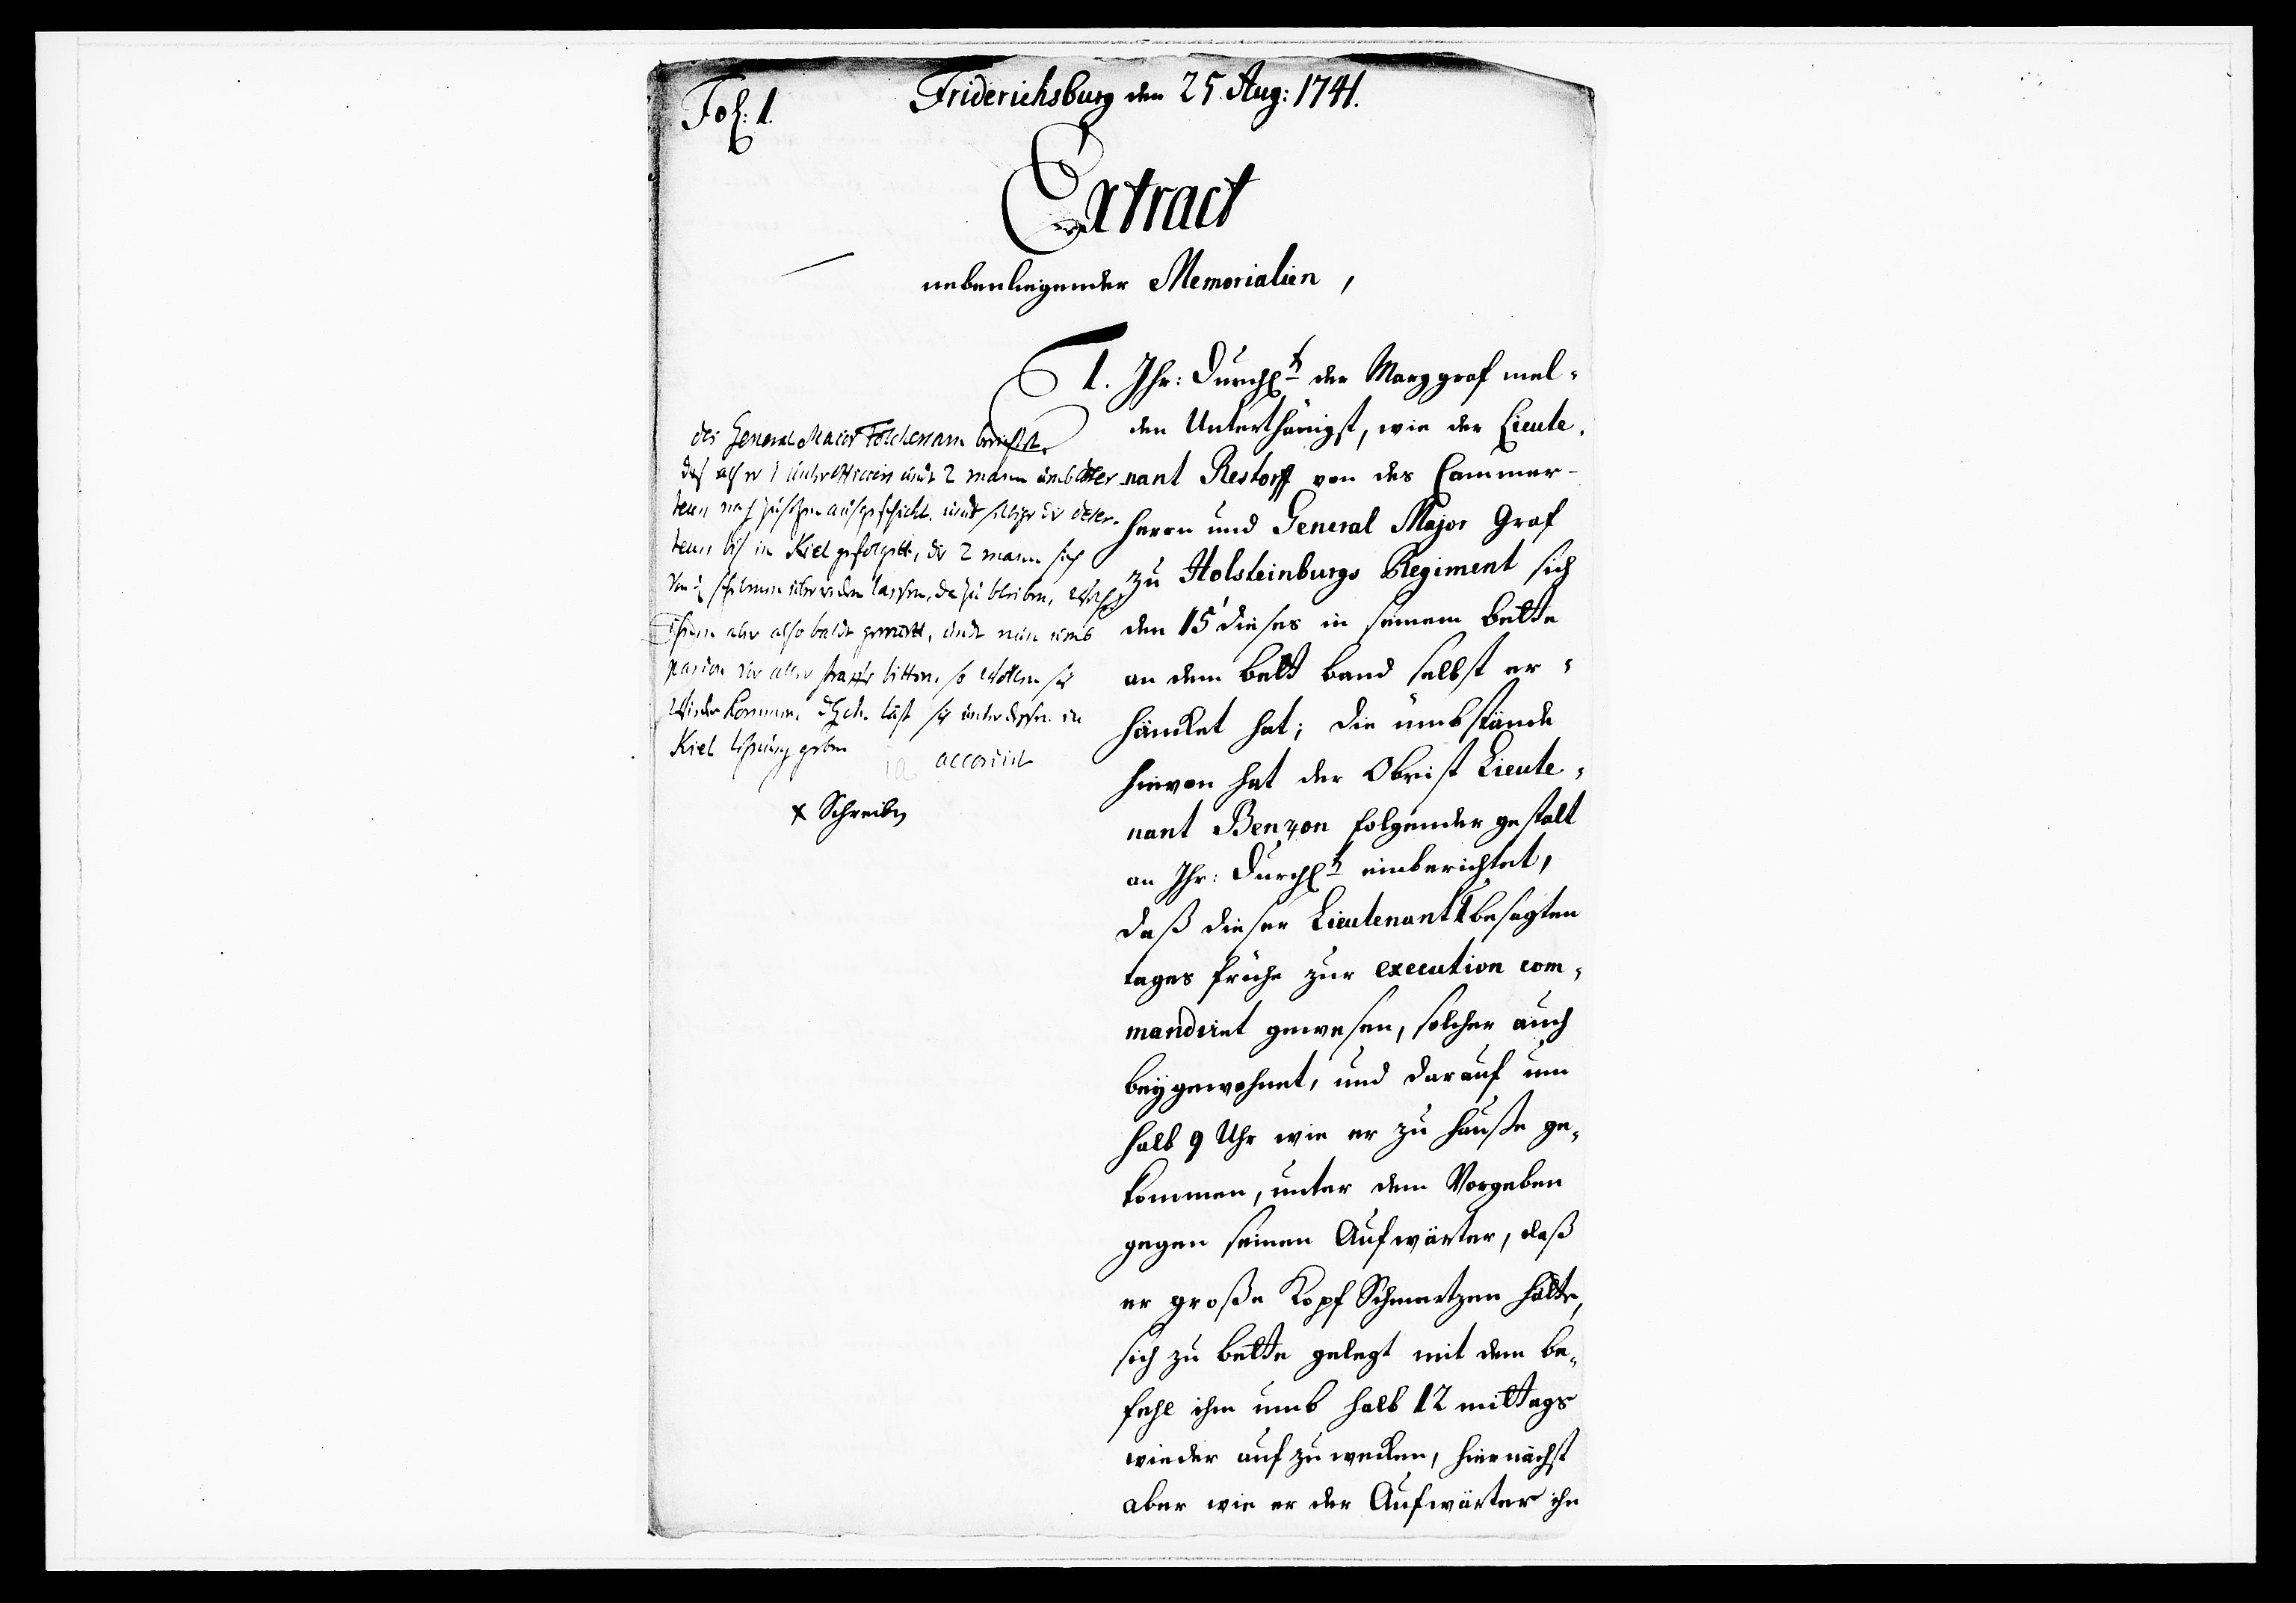 Fol: 1.
Friderichsburg den 25. Aug: 1741.
Extract
nebenliegender Memorialien,
1. Ihr: Durchl^t der Marggraf mel-
den Unterthänigst, wie der Lieute-
nant Restorff von des Cammer-
herrn und General Major Graf
zu Holsteinburgs Regiment sich
den 15' dieses in seinem bette
an dem bett band selbst er-
häncket hat; die ümbstände
hievon hat der Obrist Lieute-
nant Benzon folgender gestalt
an Ihr: Durchl^t einberichtet,
daß dieser Lieutenant besagten
tages frühe zur execution com-
mandiret gewesen, solcher auch
beygewohnet, und darauf um
halb 9 Uhr wie er zu hauße ge-
kommen, unter dem Vorgeben
gegen seinen Aufwärter, daß
er große Kopf Schmertzen hätte,
sich zu bette gelegt mit dem be-
fehl ihn umb halb 12 mittags
wieder auf zu wecken, hiernächst
aber wie er der Aufwärter ihn
des General Maior Folckersam berichtet.
daß als er 1 unter Officier undt 2 mann
nach zusetzen ausgeschickt. undt selbige die deser-
teurs bis in Kiel gefolgett, die 2 mann sich
lassen, da zu bleiben,
aber also baldt gereuett, undt nun umb
pardon vor aller straffe bitten. so wollen sie
wieder kommen. läst sie unter dessen in
Kiel löhnung geben
accordirt
x Schreiben